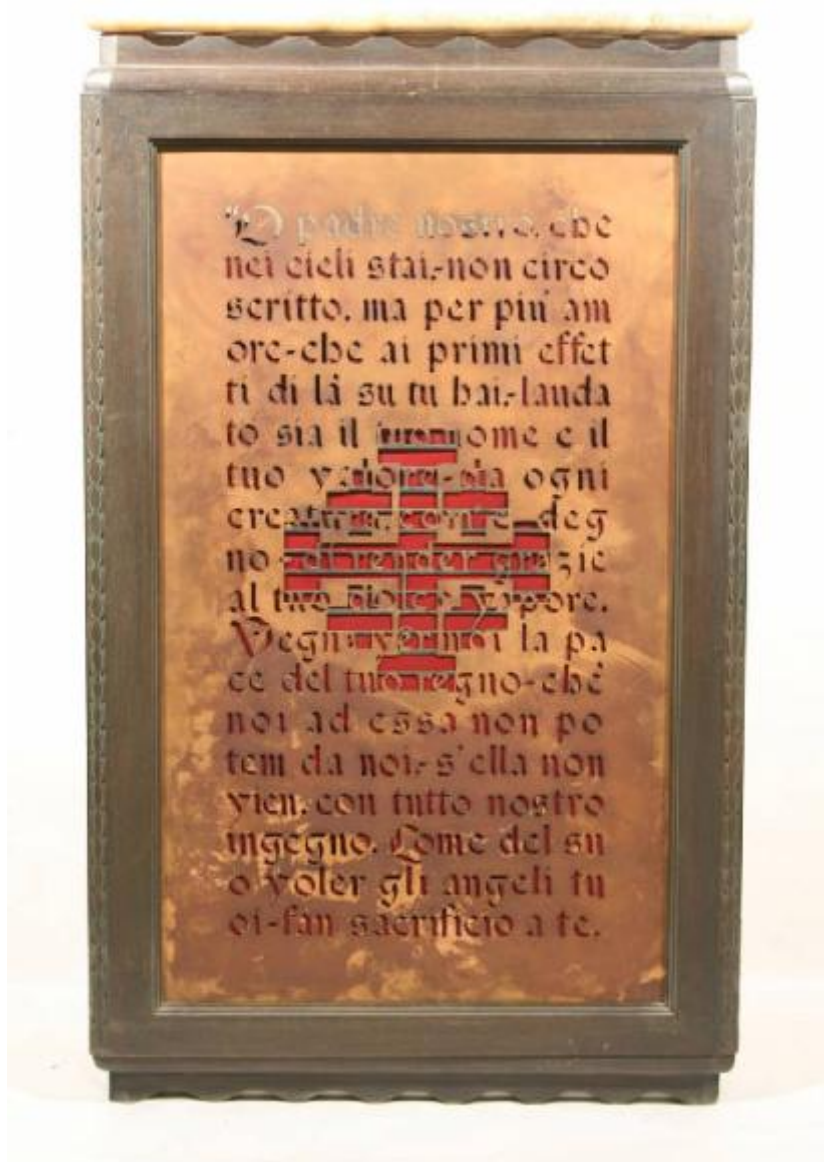 "O padre nostro, che
nei cieli stai,-non circo
scritto, ma per piú am
ore-che ai primi effet
ti di lá su tu hai,-lauda
to sia il tuo nome e il
tuo valore-da ogni
creatura, com'e deg
no-di render grazie
al tuo dolce vapore.
Vegna ver noi la pa
ce del tuo regno-ché
noi ad essa non po
tem da noi,-s'ella non
vien, con tutto nostro
ingegno. Come del su
o voler gli angeli tu
oi-fan sacrificio a te.